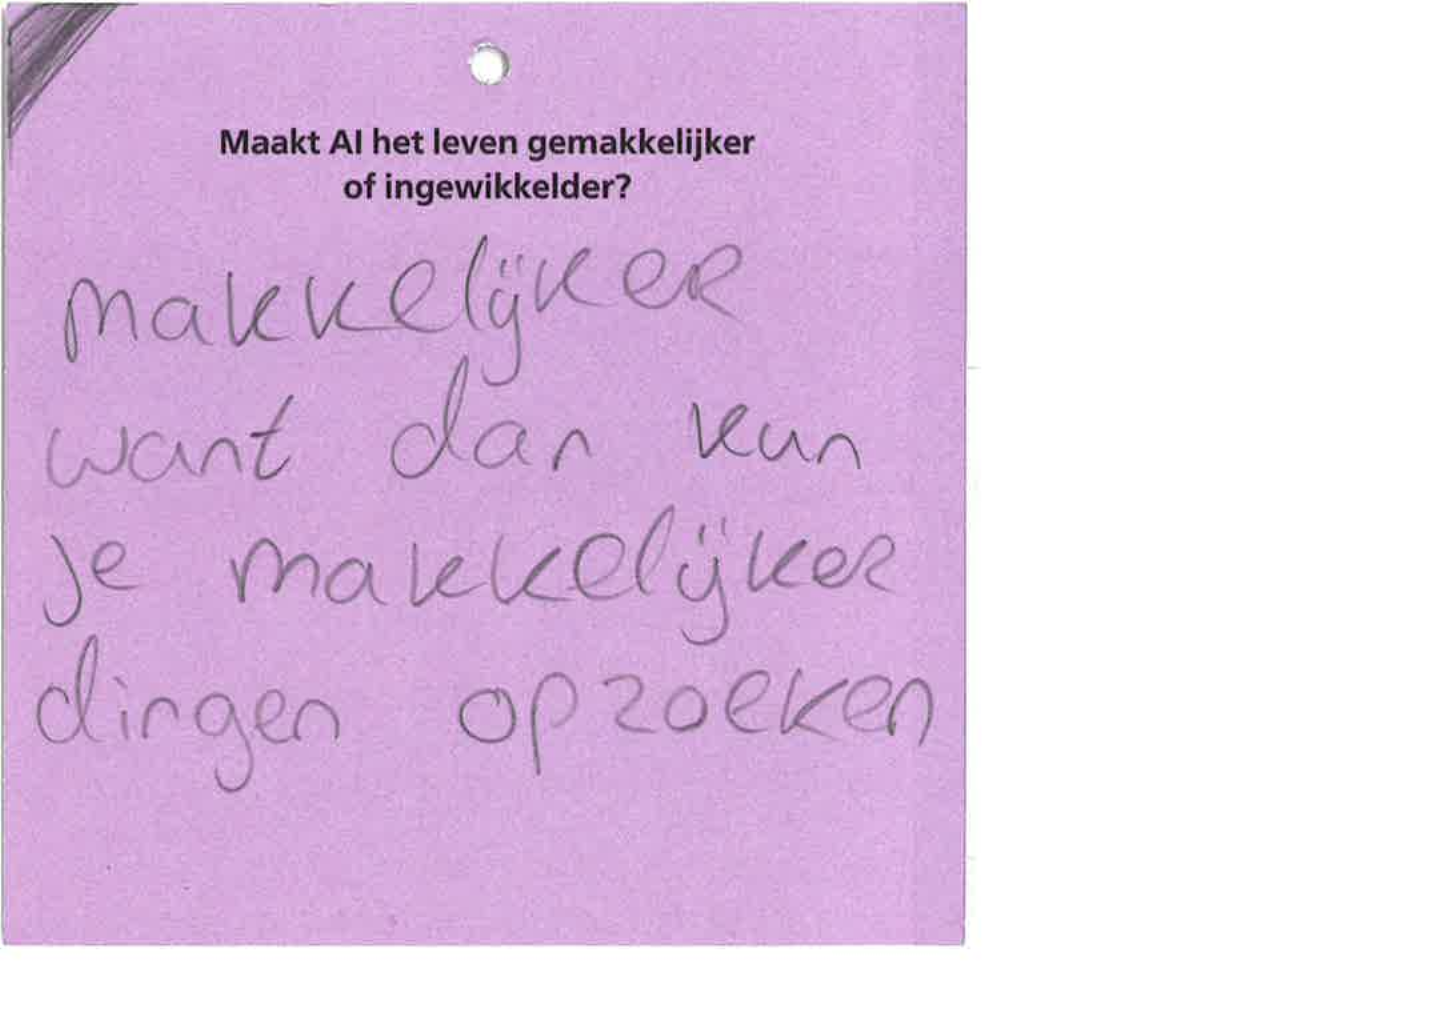 Maakt AI het leven gemakkelijker
of ingewikkelder?
makkelijker
want dan kun
je makkelijker
dingen opzoeken